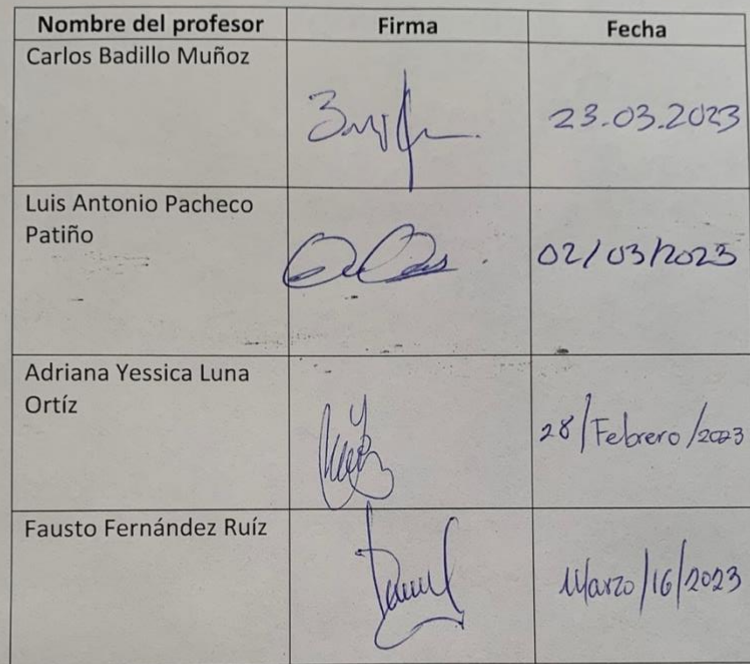 Nombre del profesor Firma Fecha
Carlos Badillo Muñoz
23.03.2023
Luis Antonio Pacheco
Patiño
02/03/2023
Adriana Yessica Luna
Ortíz
28/Febrero/2023
Fausto Fernández Ruíz
Marzo/16/2023